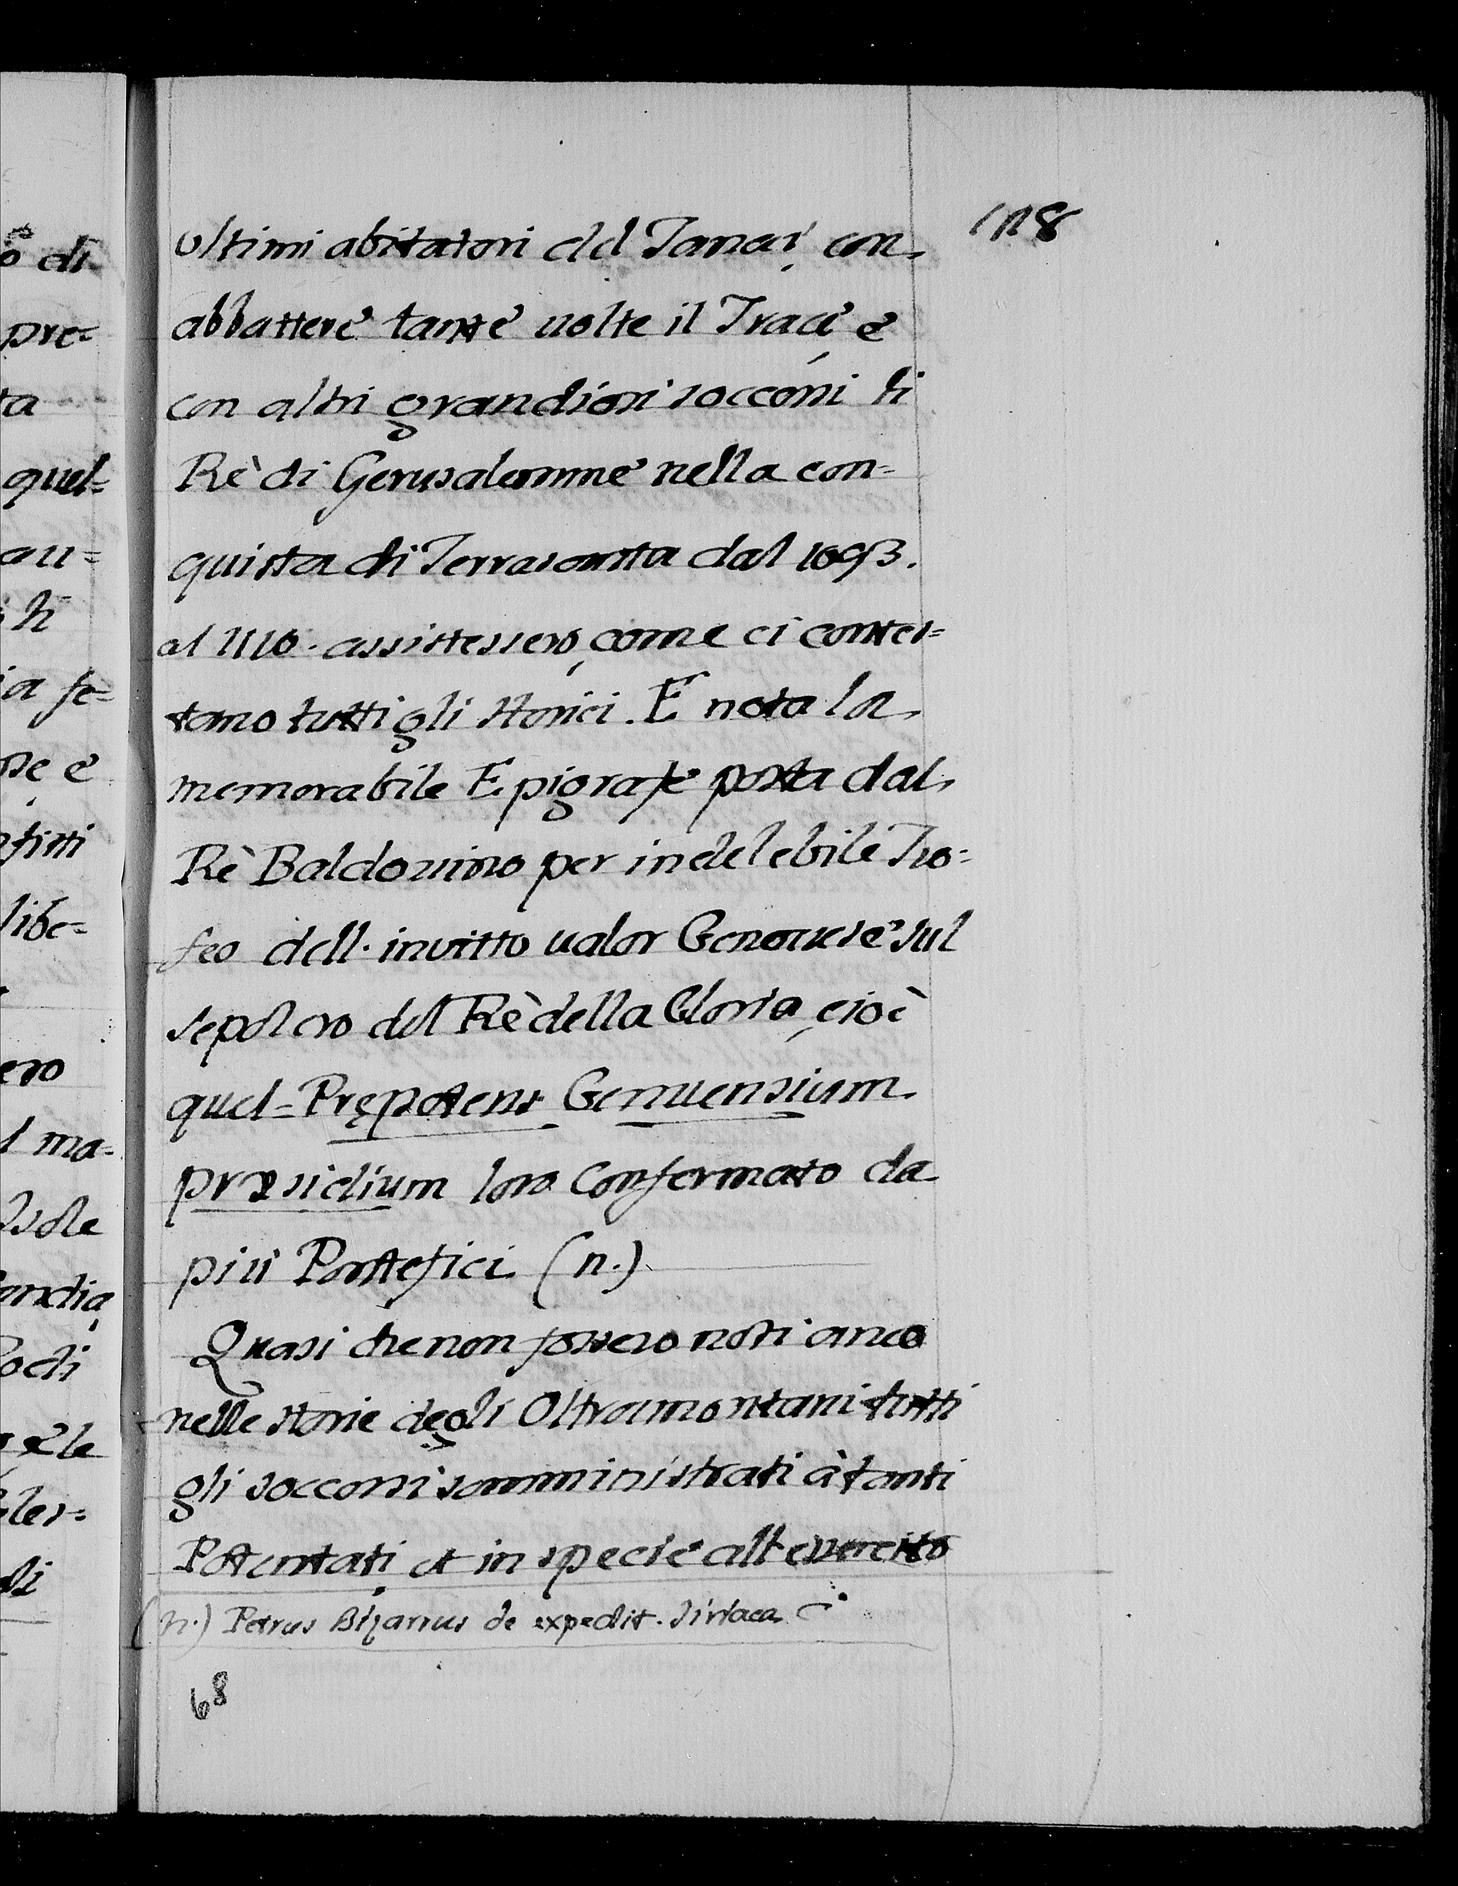 128
ultimi abitatori del Tanai, con
abbattere tante uolte il Trace, e
con altri grandiosi soccorsi li
Rè di Gerusalemme nella con=
quista di Terrasanta dal 1093.
al 1110. assistessero, come ci contes=
tano tutti gli storici. E' nota la
memorabile Epigrafe posta dal
Rè Baldouino per indelebile Tro=
feo dell. inuitto ualor Genouese sul
sepolcro del Rè della Gloria, cioè
quel= Prępotens Genuensium
præsidium loro Confermato da
più Pontefici (n.)
Quasi che non fossero noti anco
nelle storie degli Oltramontani tutti
gli soccorsi somministrati à tanti
Potentati, et in specie all esercito
(n.) Petrus Bizarrus de expedit. Siriaca
68
o di
pre=
ta
quel=
au=
li
ia fe=
se e
libe=
ero
l ma=
Isole
andia,
le
di